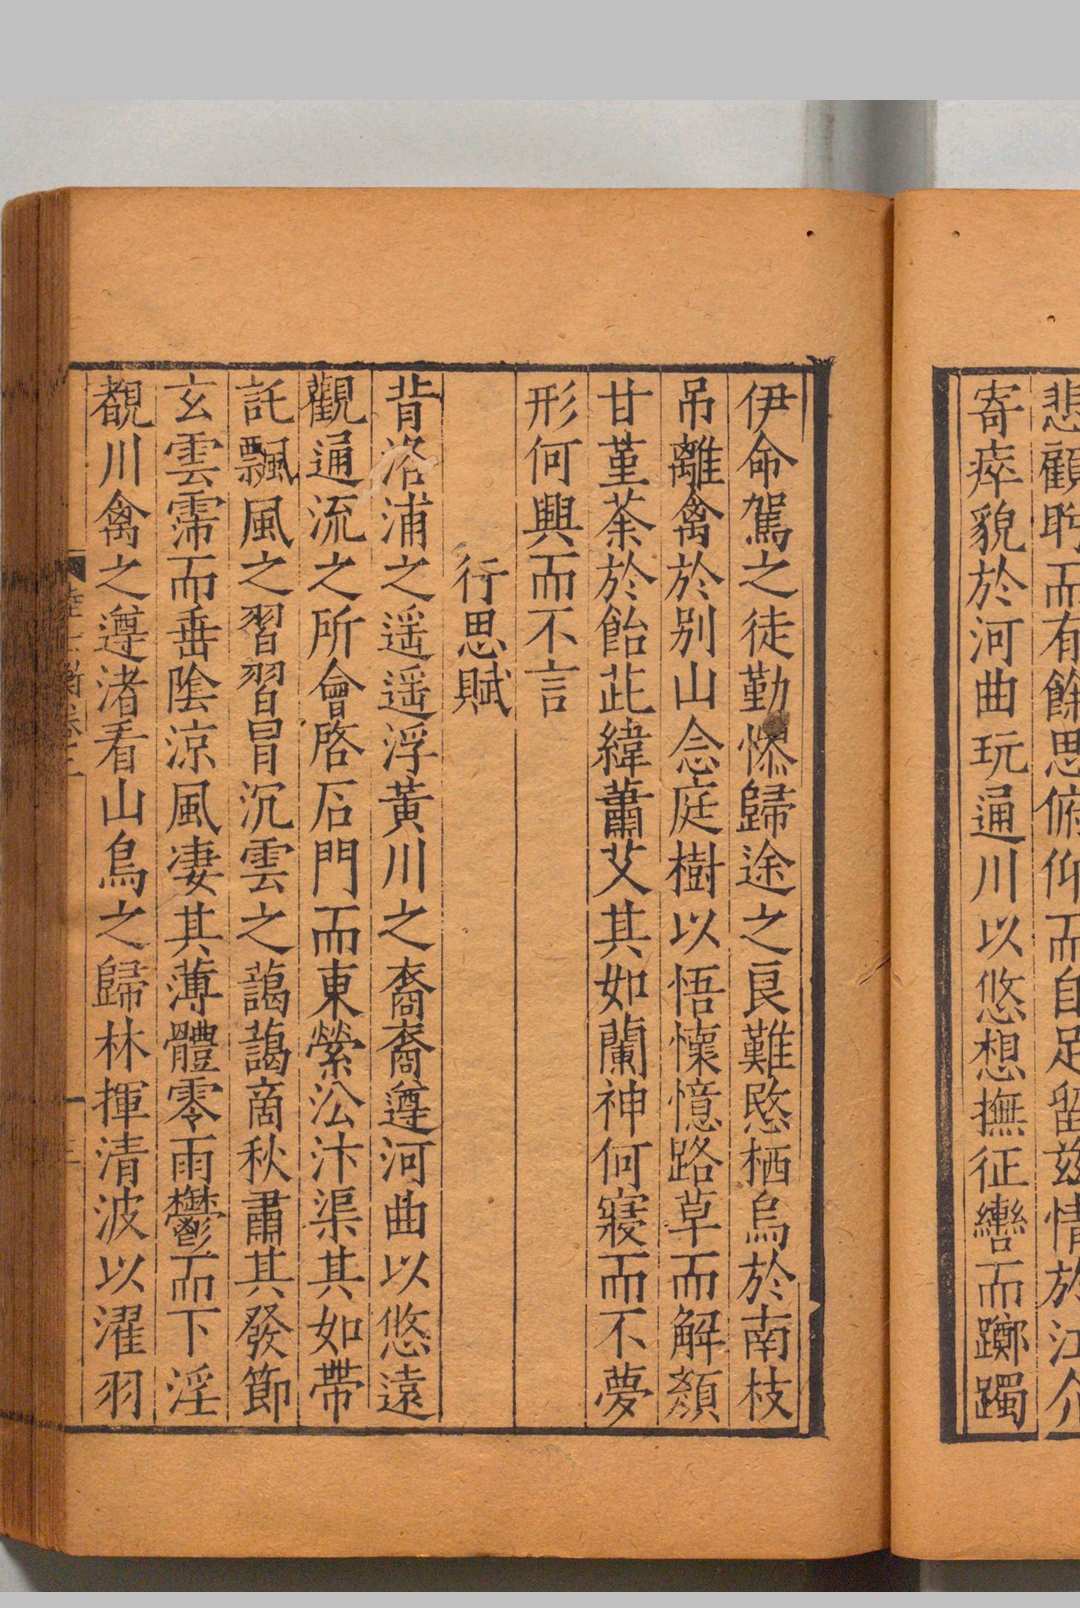 悲顧眄而有餘思俯仰而自足留兹情於江介
寄瘁貌於河曲玩通川以悠想撫征轡而躑躅
伊命駕之徒勤慘歸途之良難愍栖鳥於南枝
吊離禽於别山念庭樹以悟懷憶路草而解顏
甘堇荼於飴茈緯蕭艾其如蘭神何寢而不夢
形何興而不言
行思賦
背洛浦之遥遥浮黄川之裔裔遵河曲以悠遠
觀通流之所會啓石門而東縈沿汴渠其如帶
託飄風之習習冒沉雲之藹藹商秋肅其發節
玄雲霈而垂陰涼風凄其薄體零雨鬱而下淫
覩川禽之遵渚看山鳥之歸林揮清波以濯羽
陸士衡卷二